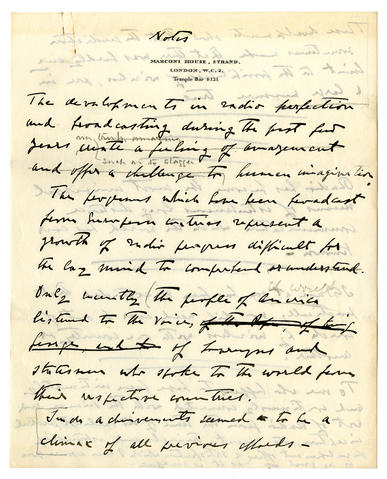 Notes
MARCONI HOUSE, STRAND,
LONDON, W.C.2,
Temple Bar 4321
The developments in radio perfection
and broadcasting during the past few
are truly amazing
years create a feeling of amazement
such as to stagger
and offer a challenge to human imagination
The programs which have been broadcast
from European centres represent a
growth of radio progress difficult for
the lay mind to comprehend or understand.
Only recently (the people of America
listened to the voices of the Pope, of King
George, and to of sovereigns and
statesmen who spoke to the world from
their respective countries.
Such achievements seemed to be a
climax of all previous efforts –